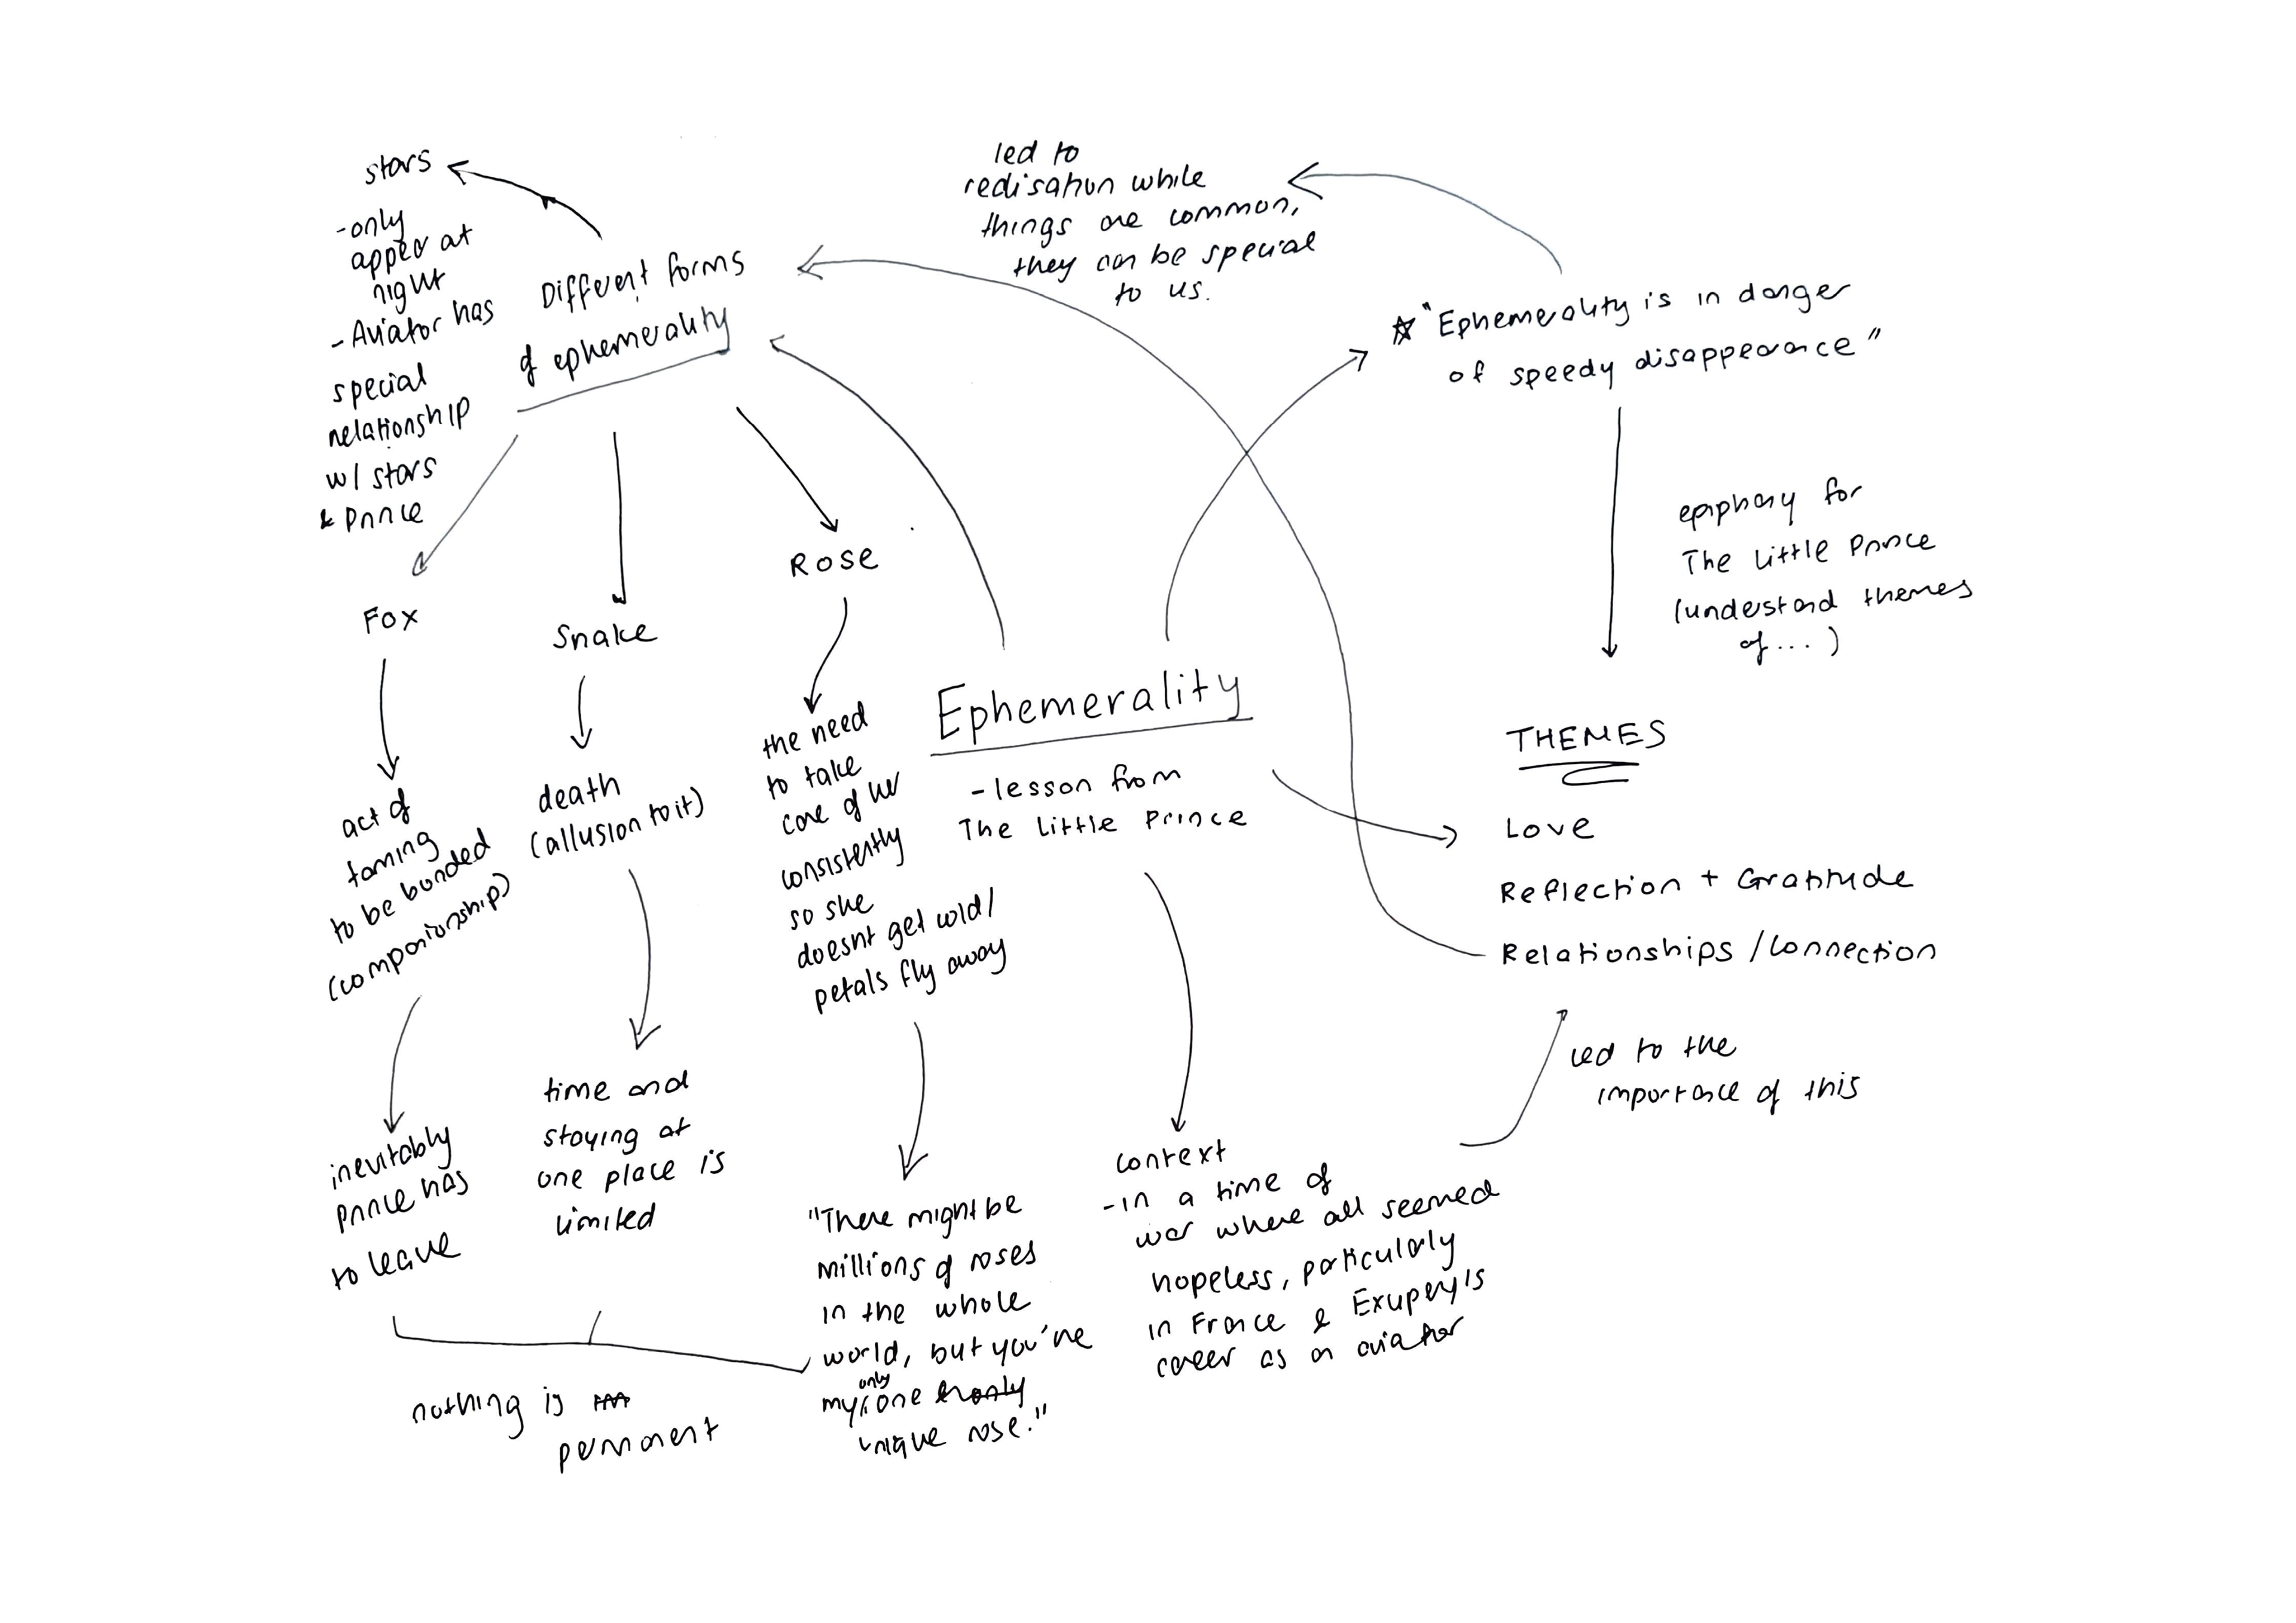 stars
-only
appear at
night
-Aviator has
special
relationship
w/ stars
& Prince
Different forms
of ephemerality
led to
realisation while
things are common,
they can be special
to us.
☆ "Ephemerality is in danger
of speedy disappearance"
epiphany for
The Little Prince
(understand themes
of...)
Fox
Snake
Rose
act of
taming
to be bonded
(companionship)
death
(allusion to it)
the need
to take
care of her
consistently
so she
doesnt get cold/
petals fly away
Ephemerality
- lesson from
The Little Prince
THEMES
Love
Reflection + Gratitude
Relationships / Connection
led to the
importance of this
inevitably
Prince has
to leave
time and
staying at
one place is
limited
"There might be
millions of roses
in the whole
world, but you're
my only one
unique rose."
context
-in a time of
war where all seemed
hopeless, particularly
in France & Exupery's
career as an aviator
nothing is
permanent